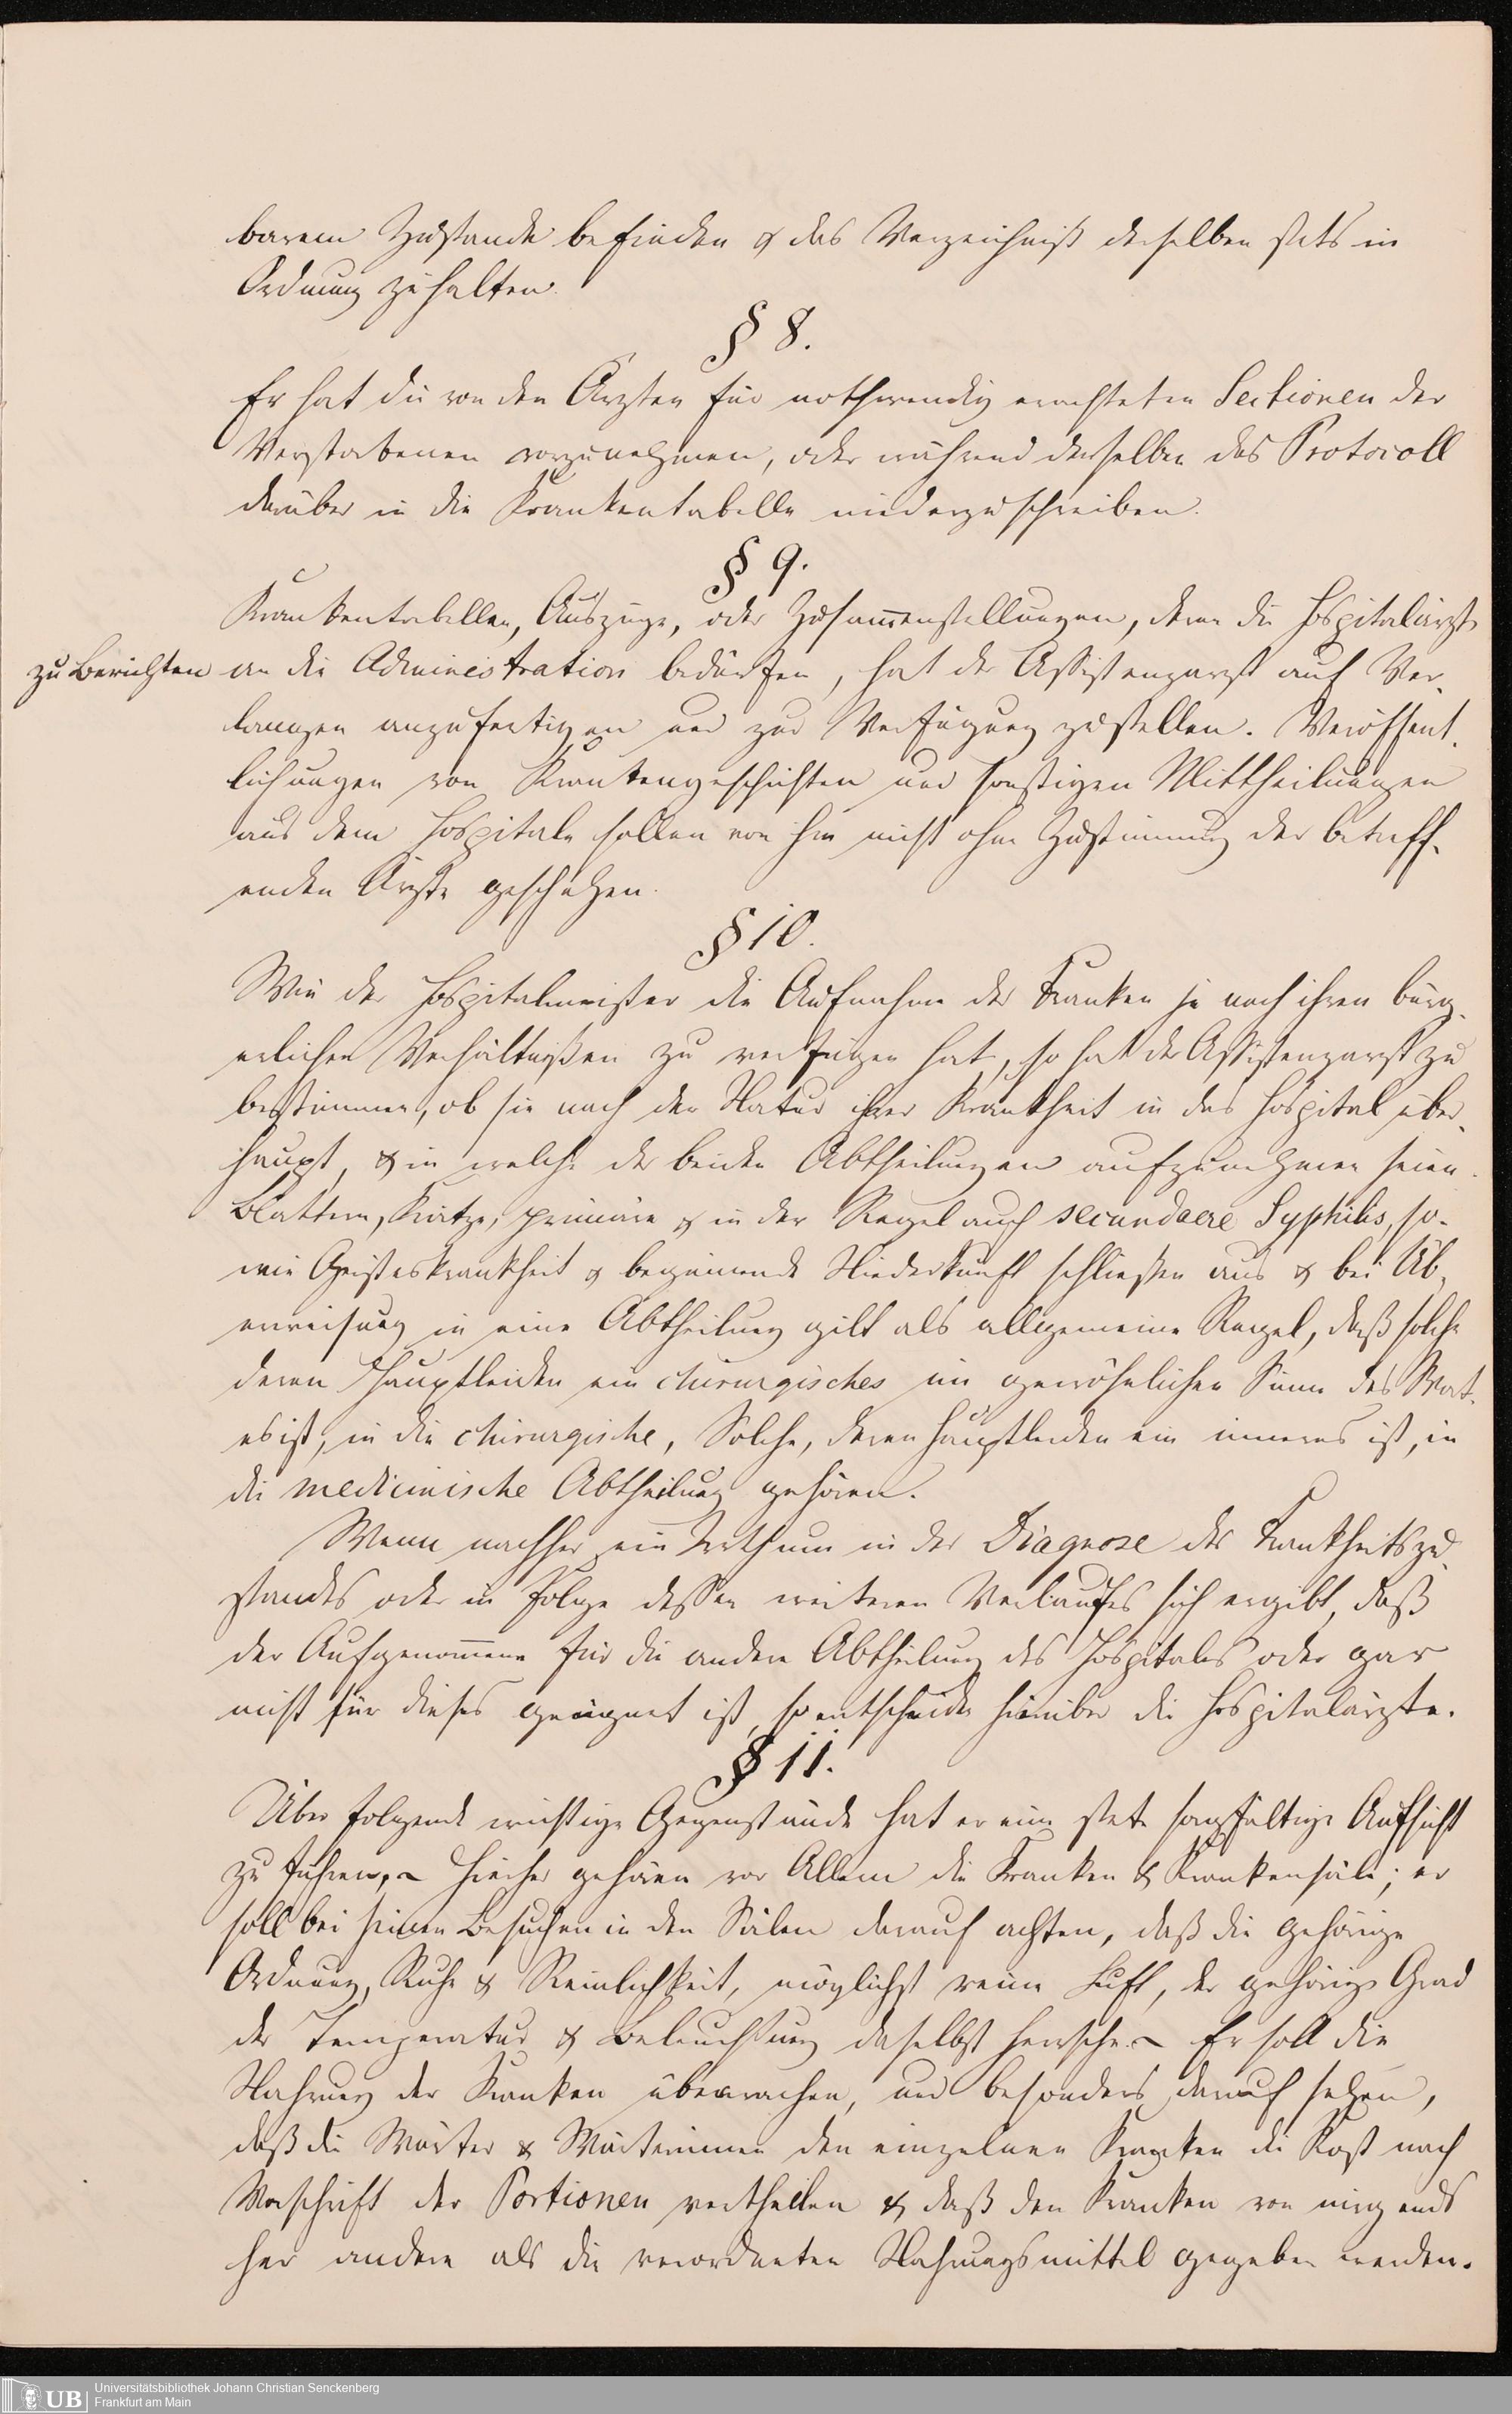 barem Zustande befinden & das Verzeichniß derselben stets in
Ordnung zu halten.
§ 8.
Er hat die von den Ärzten für nothwendig erachteten Sectionen der
Verstorbenen vorzunehmen, oder während derselben das Protocoll
darüber in die Krankentabelle niederzuschreiben.
§ 9.
Krankentabellen, Auszüge, oder Zusammenstellungen, deren die Hospitalärzte
zu Berichten an die Administration bedürfen, hat der Assistenzarzt auf Ver-
langen anzufertigen und zur Verfügung zu stellen. Veröffent-
lichungen von Krankengeschichten und sonstigen Mittheilungen
aus dem Hospitale sollen von ihm nicht ohne Zustimmung der betreff-
enden Ärzte geschehen.
§ 10.
Wie der Hospitalmeister die Aufnahme der Kranken je nach ihren bürg-
erlichen Verhältnißen zu verfügen hat, so hat der Assistenzarzt zu
bestimmen, ob sie nach der Natur ihrer Krankheit in das Hospital über-
haupt, & in welche der beiden Abtheilungen aufzunehmen seien.
Blattern, Krätze, primäre & in der Regel auch secundaere Syphilis, so-
wie Geisteskrankheit & beginnende Niederkunft schließen aus & bei Üb-
erweisung in eine Abtheilung gilt als allgemeine Regel, daß solche
deren Hauptleiden ein chirurgisches im gewöhnlichen Sinne des Wort-
es ist, in die chirurgische, Solche, deren Hauptleiden ein inneres ist, in
die medicinische Abtheilung gehören.
Wenn nachher ein Irrthum in der Diagnose des Krankheitszu-
standes oder in Folge dessen weiteren Verlaufes sich ergibt, daß
der Aufgenommene für die andere Abtheilung des Hospitales oder gar
nicht für dieses geeignet ist, so entscheiden hierüber die Hospitalärzte.
§ 11.
Über folgende wichtige Gegenstände hat er eine stete sorgfältige Aufsicht
zu führen, – Hierher gehören vor Allem die Kranken & Krankensäle; er
soll bei seinen Besuchen in den Sälen darauf achten, daß die gehörige
Ordnung, Ruhe & Reinlichkeit, möglichst reine Luft, der gehörige Grad
der Temperatur & Beleuchtung daselbst herrsche. – Er soll die
Nahrung der Kranken überwachen, und besonders darauf sehen,
daß die Wärter & Wärterinnen den einzelnen Kranken die Kost nach
Vorschrift der Portionen vertheilen & daß den Kranken von nirgends
her andere als die verordneten Nahrungsmittel gegeben werden.
UB Universitätsbibliothek Johann Christian Senckenberg
Frankfurt am Main